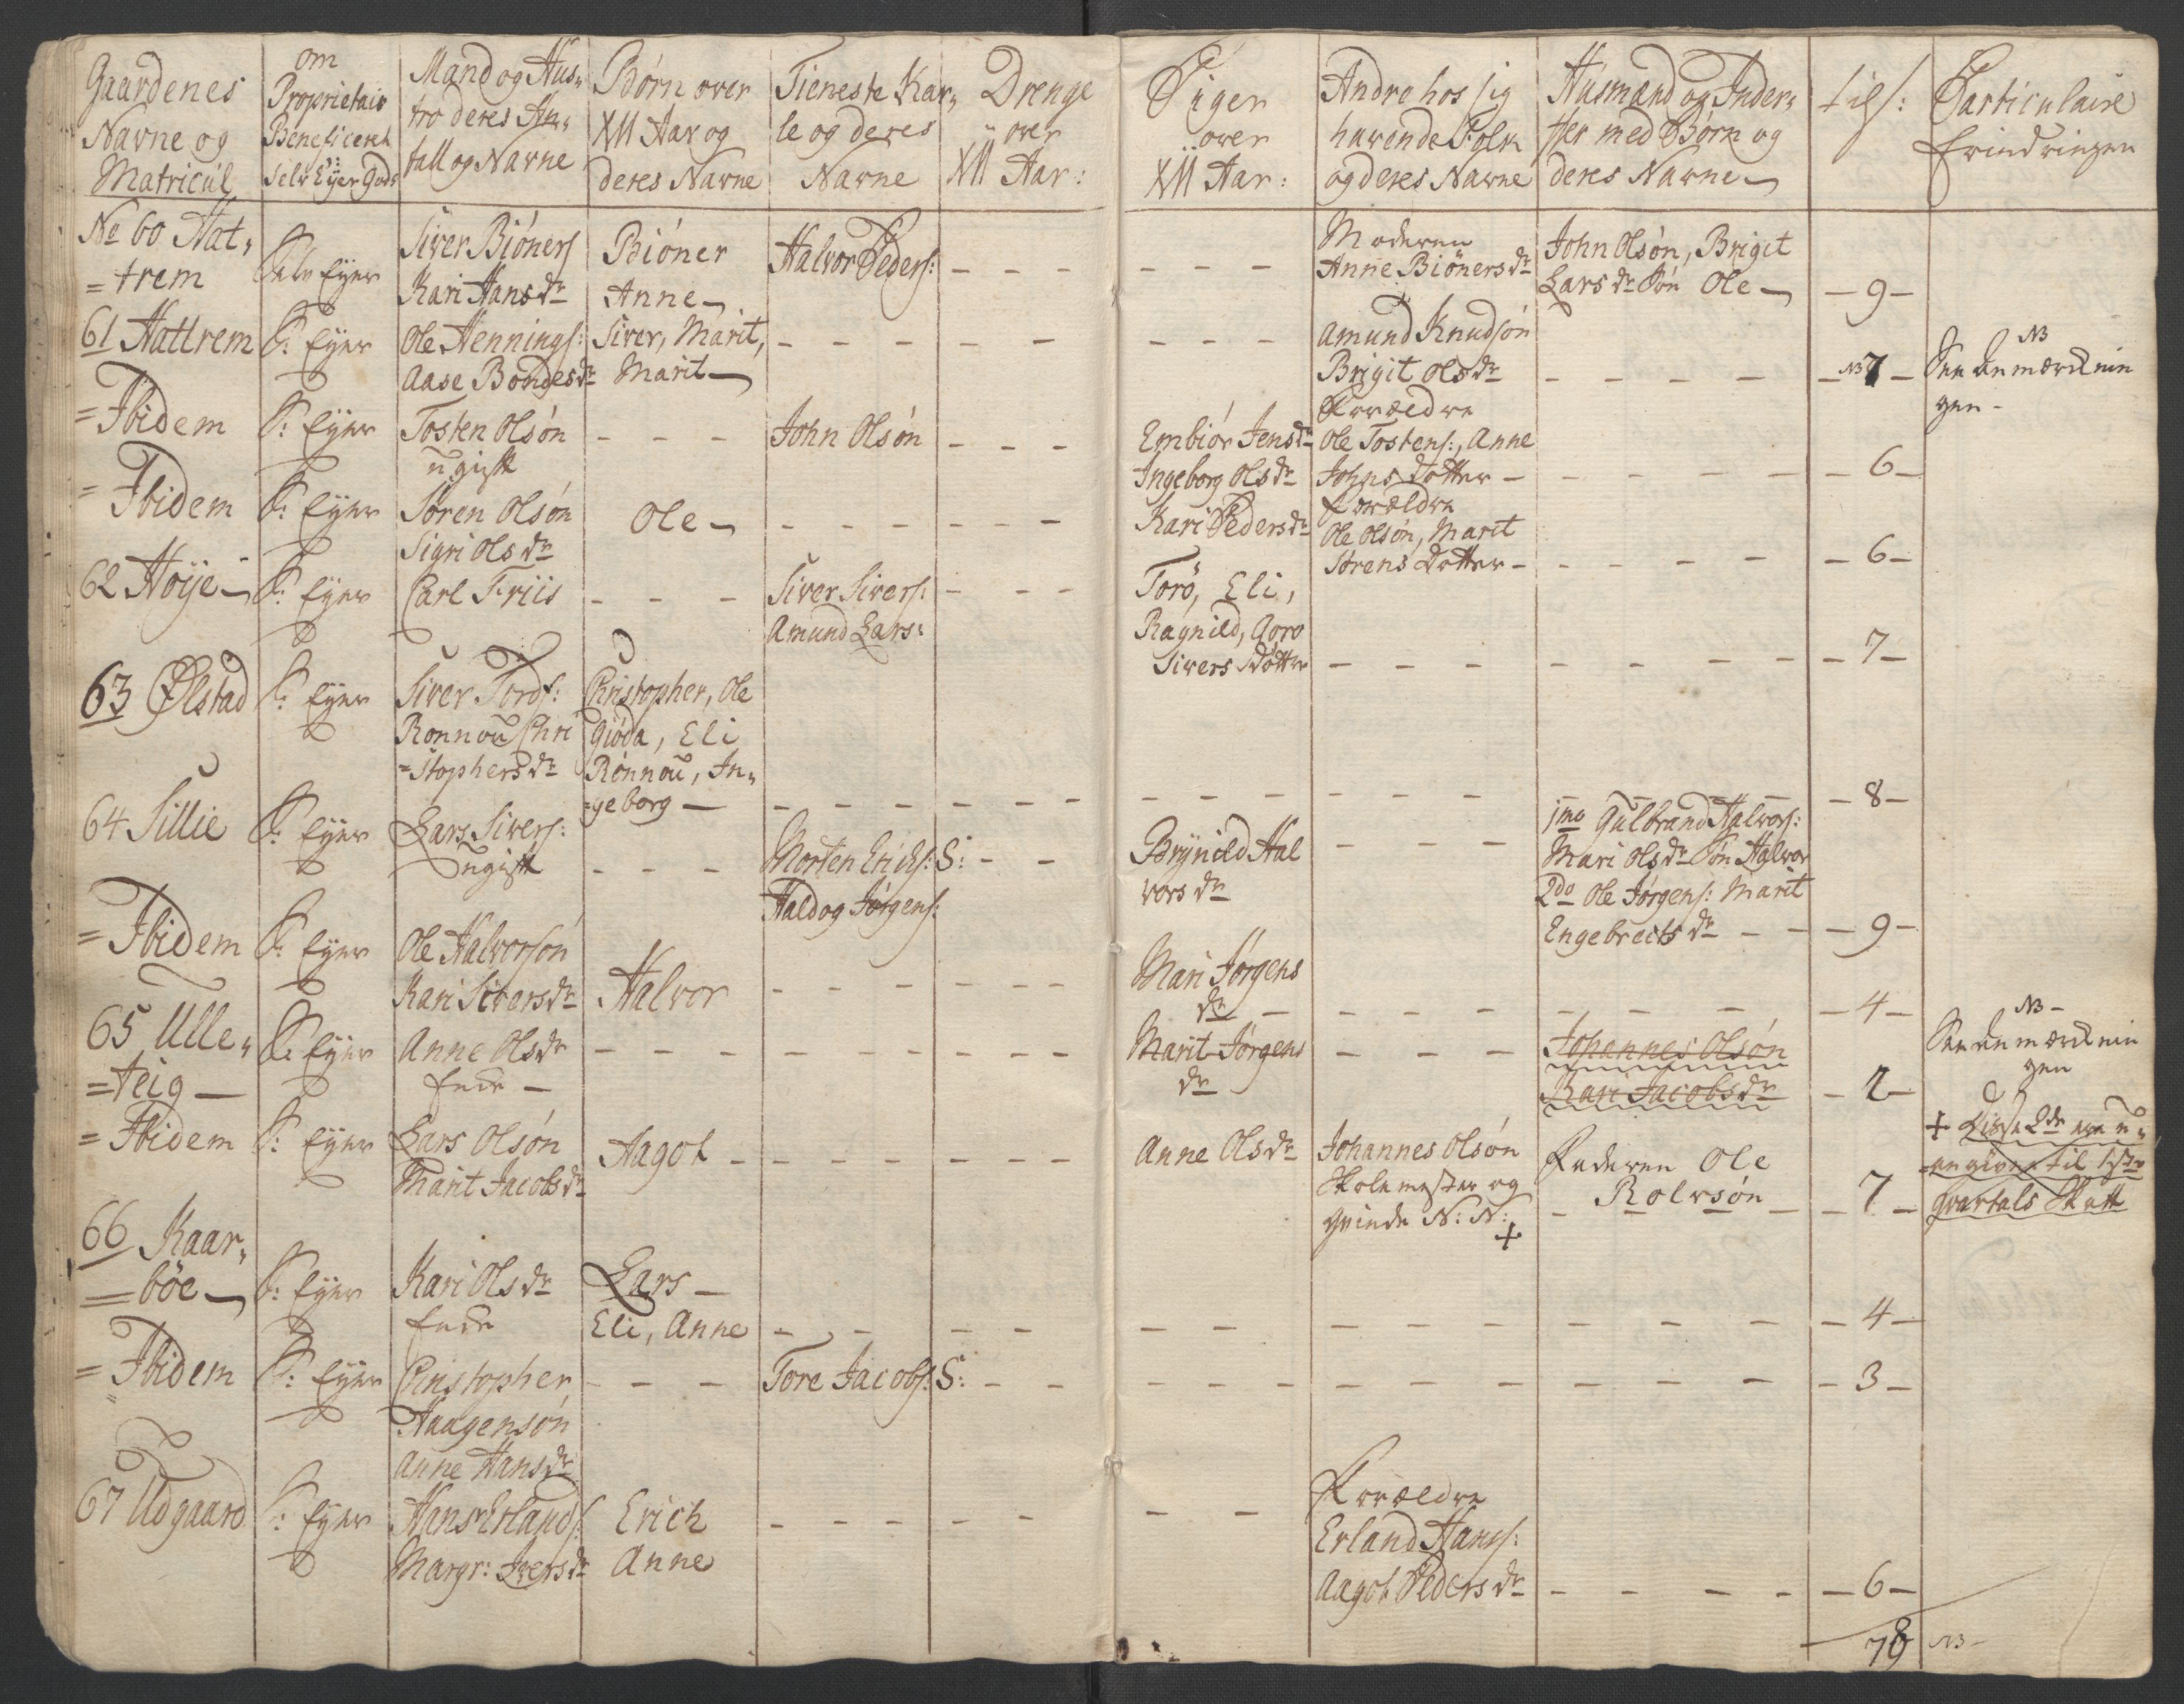 Gaardenes
Navne og
Matricul
om
Proprietair
Beneficeret
Selv Eyer Gods
Mand og Hus„
tro deres An„
tall og Navne
Børn over
XII Aar og
deres Navne
Tieneste Kar„
le og deres
Navne
Drenge
over
XII Aar:
Piger
over
XII Aar:
Andre hos sig
havende Folk
og deres Navne
Husmænd og Inder„
ster med Børn og
deres Navne
tils:
Particulaire
Erindringer
No 60 Hat„
=trem
Selv Eyer
Siver Biöners
Kari Hans dr
Biöner
Anne
Halvor Peders: - - -
- - -
Moderen
Anne Biöners dr
John Olsøn, Brigit
Lars dr Søn Ole
- 9 -
61 Hattrem
S: Eyer
Ole Hennings:
Aase Bondes dr
Siver, Marit,
Marit
- - - - -
- - -
Amund Knudsøn
Brigit Ols dr
- - - -
NB 7 -
NB
See Anmærknin
gen -
= Ibidem
S: Eyer
Tosten Olsøn
ugift
- - -
John Olsøn - - -
Embiör Jens dr
Ingeborg Ols dr
Forældre
Ole Tostens:, Anne
Johns Dotter -
- - - -
- 6 -
= Ibidem
S: Eyer
Sören Olsön
Sigri Ols dr
Ole
- - - - - -
Kari Peders dr
Forældre
Ole Olsøn, Marit
Sörens Dotter -
- - - -
- 6 -
62 Høÿe
S: Eyer
Carl Friis
- - -
Siver Sivers:
Amund Lars:
- - -
Torö, Eli,
Ragnild, Goro
Sivers Dotter
- - -
- - - -
- 7 -
63 Ølstad
S: Eyer
Siver Tords:
Ronnou Chri
=stophers dr
Christopher, Ole
Giöda, Eli
Rönnou, In„
=geborg
- - - - -
- - -
- - -
- 8 -
64 Sillie
S: Eyer
Lars Sivers:
ugift
- - -
Morten Erichs: S: - -
Haldog Jørgens:
Brÿnild Hal
vors dr
- - -
1mo Gulbrand Halvors:
Mari Ols dr Søn Halvor
2do Ole Jørgens: Marit
Engebrects dr - -
- 9 -
= Ibidem
S: Eyer
Ole Halvorsön
Kari Sivers dr
Halvor
- - - - - -
Mari Jørgens
dr -
- - -
- - -
- 4 -
65 Ulle„
=teig
S: Eyer
Anne Ols dr
Enke -
- - -
- - - - -
Marit Jørgens
dr
- - -
Johannes Olsøn
Kari Jacobs dr
- 2 -
NB -
See Anmærknin
gen
= Ibidem
S: Eyer
Lars Olsøn
Marit Jacobs dr
Aagot -
- - - - - -
Anne Ols dr
Johannes Olsøn
Skolemester og
Qvinde N: N:
+
Faderen Ole
Rolvsøn
- 7 -
+ Disse 2de ere u„
=angiven til 1ste
Qvartals Skatt
66 Kaar„
=böe
S: Eyer
Kari Ols dr
Enke
Lars
Eli, Anne
- - - -
- -
- - -
- - -
- 4 -
= Ibidem
S: Eyer
Christopher
Haagensön
Anne Hans dr
- - -
Tore Jacobs: S: - -
- - -
- - -
- - -
- 3 -
67 Udgaard
S: Eyer
Hans Erlands:
Margr: Ivers dr
Erich
Anne
- - - - -
- -
Forældre
Erland Hans:
Aagot Peders dr
- - - -
- 6 -
78 NB -